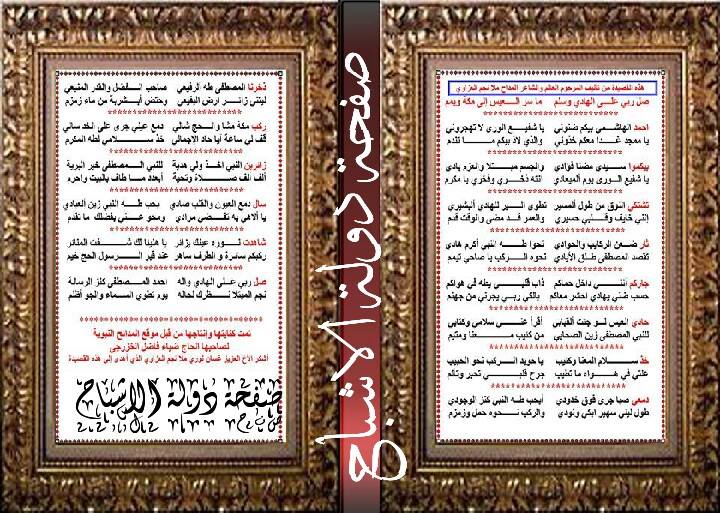 هذه القصيدة من تأليف المرحوم العالم والشاعر المداح ملا نجم العزاوي
صل ربي على الهادي وسلم ما سر العيس إلى مكة ويمم
احمد الهاشمي بيكم ضنوني يا شفيع الورى لا تهجروني
يا ممجد غدا معكم خذوني والذي لاذ بيكم ما تندم
بيكموا سيدي مضنا فؤادي والجسم مبتلا ولعزم بادي
يا شفيع الورى يوم الميعادي انته ذخري وفخري يا مكرم
تشتكي النوق من طول المسير تطوى البر للهادي البشيري
إنني خايف وقلبي حسيري والعمر قد مضى والوقت قدم
ثار ضعن الركايب والحوادي نحوا طه النبي أكرم هادي
تقصد المصطفى طلق الأيادي نحوه الركب يا صاحي تيمم
جاركم إنني داخل حماكم ذاب قلبي يطه في هواكم
حسب ضني يهادي احشر معاكم بالكي ربي يجرني من جهنم
حادي العيس لو جئت القبابي أقرأ عني سلامي وكتابي
للنبي المصطفى زين الصحابي من كئيب معنا ومتيم
خذ سلام المعنا وكئيب يا حويد الركب نحو الحبيب
علتي في هواه ما تطيب جرح قلبي تحير وتالم
دمعي صبا جرى فوق خدودي أيحب طه النبي كنز الوجودي
طول ليني سهير ابكي ونودي والركب نحوه حمل وزمزم
ذخرنا المصطفى طه الرفيعي صاحب الفضل والقدر المنيعي
ليتني زائر ارض البقيعي وحتض أبشربة من ماء زمزم
ركب مكة مشا والحج شالي دمع عيني جرى على الخد سالي
قف لي ساعة أيا حاد الاجمالي خذ سلامي لطه المكرم
زائرين النبي اخذ ولي هدية للنبي المصطفى خير البرية
ألف الف صلاة وتحية أبعدد ما طاف بالبيت واحرم
سال دمع العيون والقلب صادي بحب طه النبي زين العبادي
يا ألاهي به تقضي مرادي ومحو عني بفضلك ما تقدم
شاهدت نوره عينك يزائر يا هنينا لك شفت المنائر
ركبكم سايرة و الطرف ساهر عند قبر الرسول الحج خيم
صل ربي على الهادي وآله احمد المصطفى كنز الرسالة
نجم المبتلا تنظرك لحاله يوم تضوي السماء والجو أظلم
تمت كتابتها وإنتاجها من قبل موقع المدائح النبوية
لصاحبها الحاج ضياء فاضل الخزرجي
أشكر الأخ العزيز غسان نوري ملا نجم العزاوي الذي أهدى إلي هذه القصيدة
صفحة دولة الاشباح
صفحة دولة الاشباح